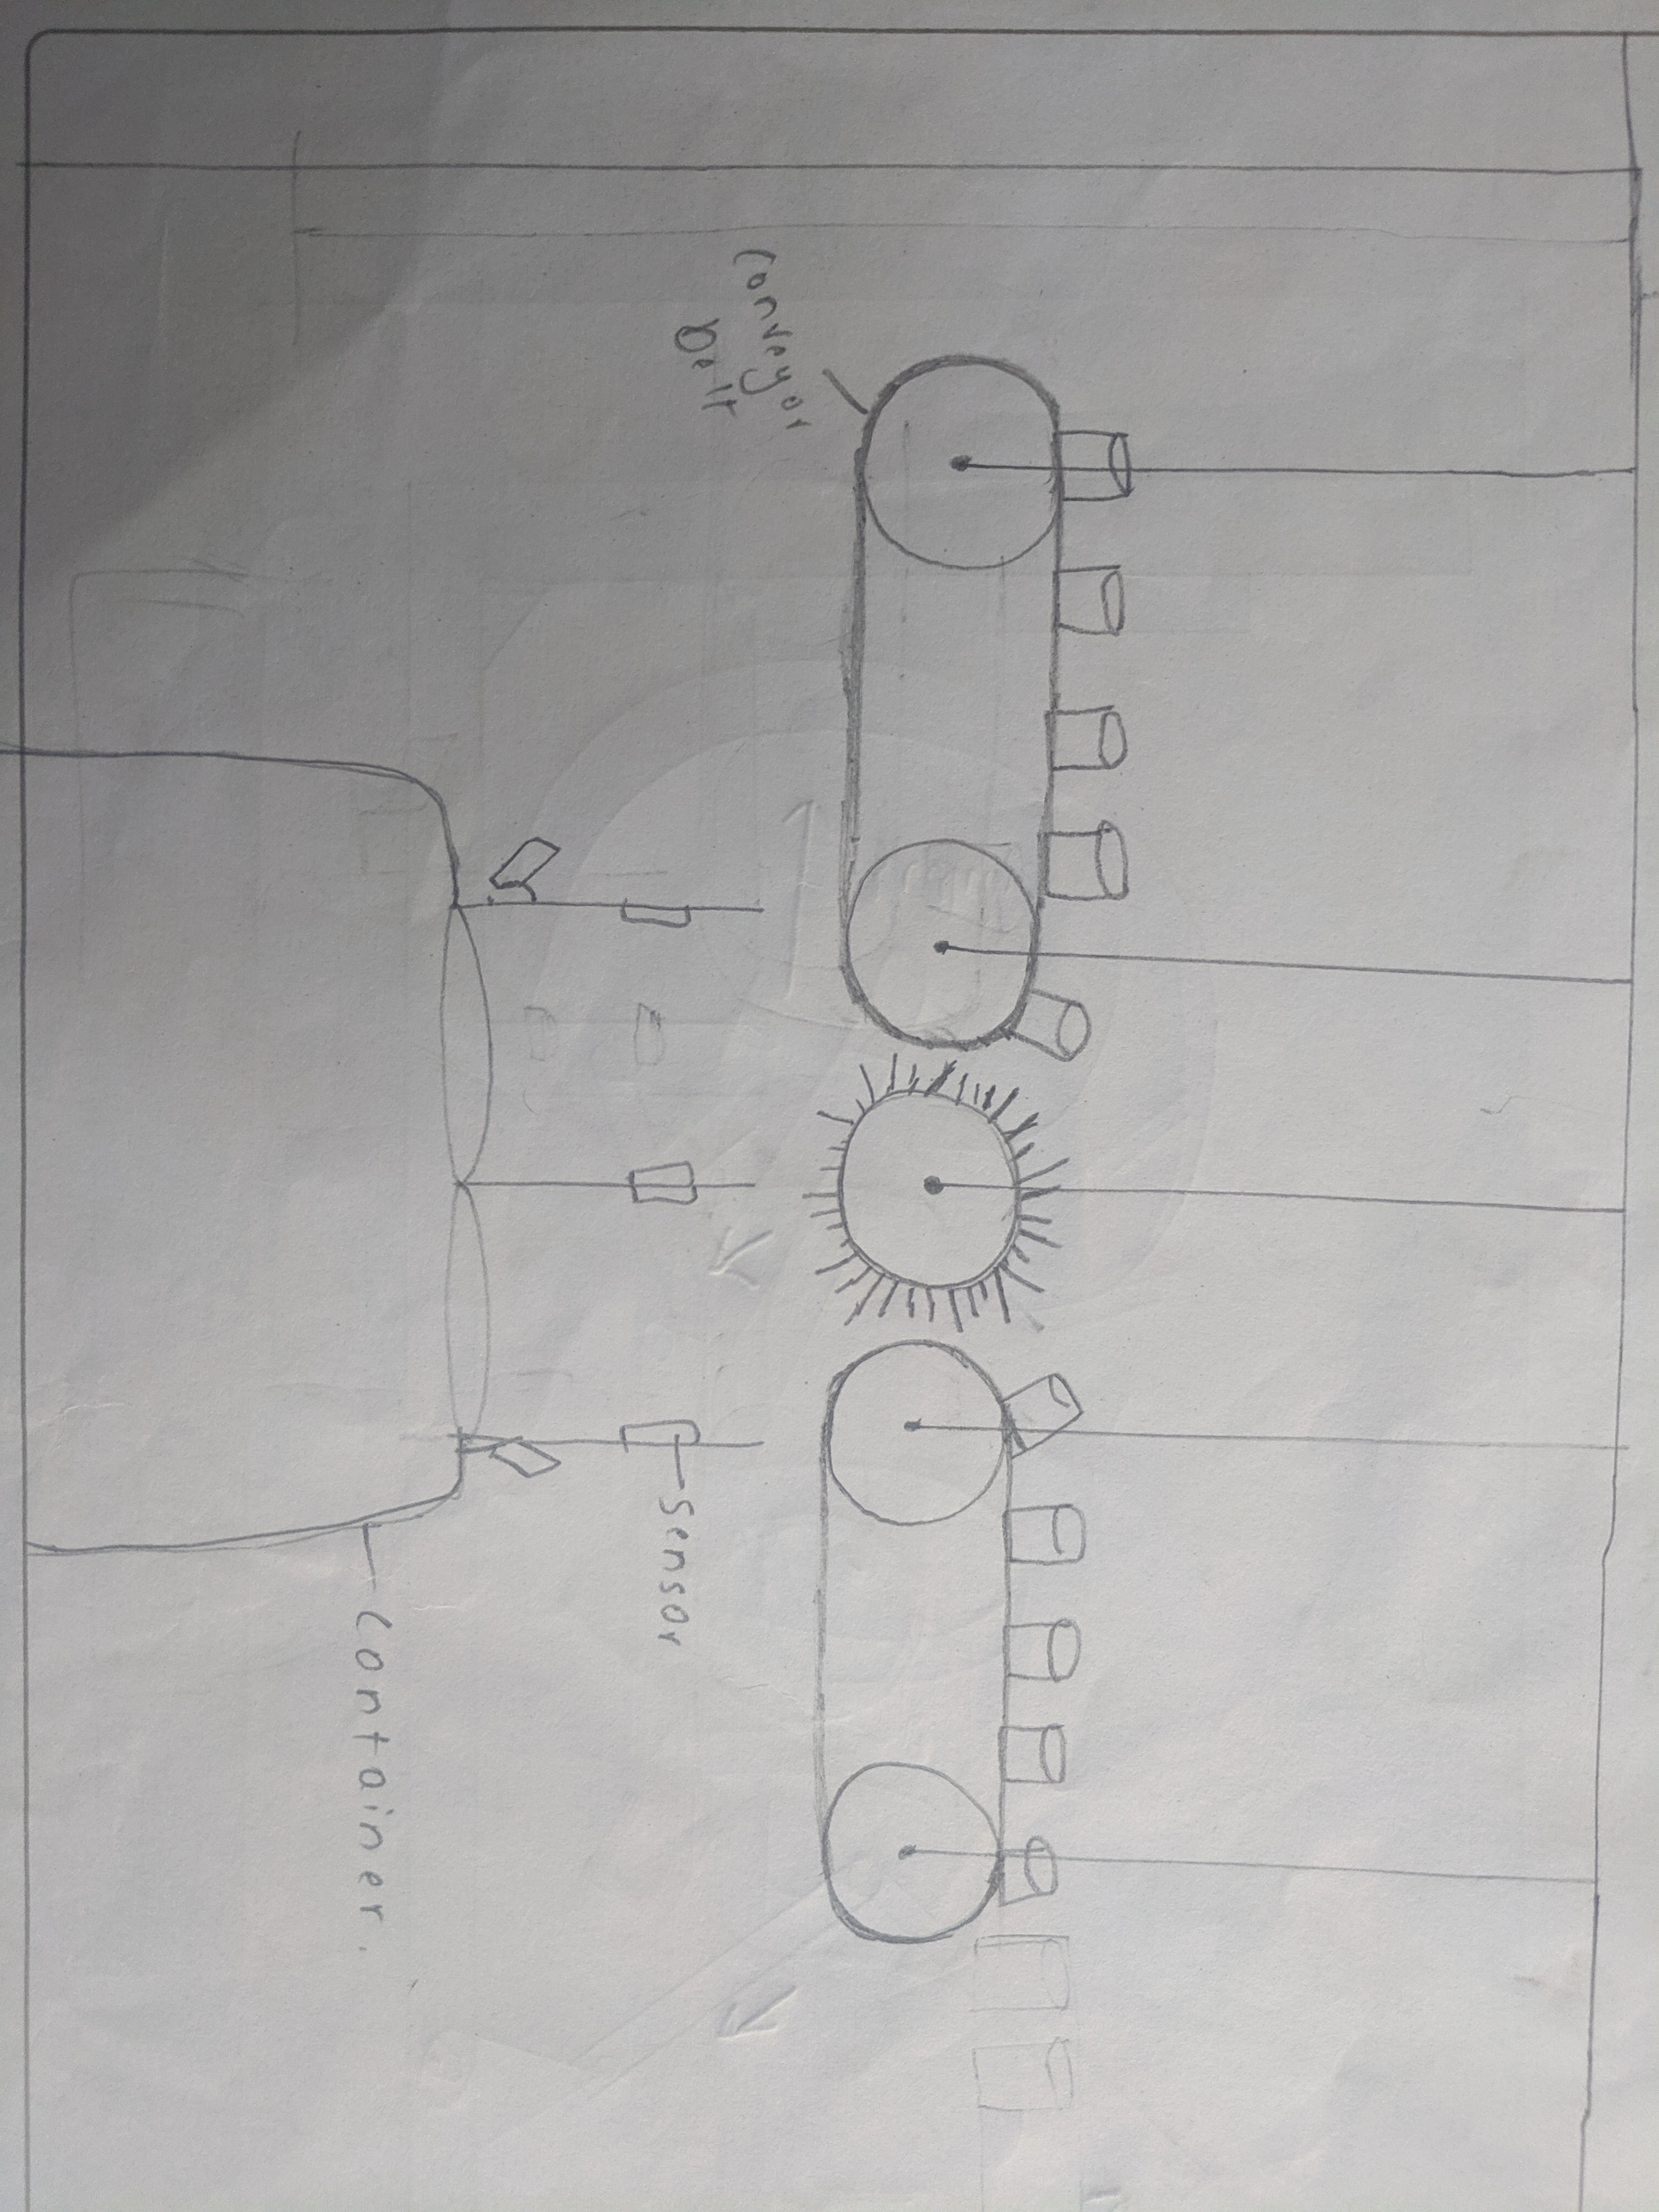 conveyor
belt
sensor
container.